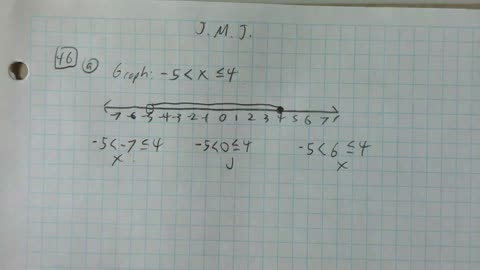 J. M. J.
46 a
Graph: -5 < x ≤ 4
-7 -6 -5 -4 -3 -2 -1 0 1 2 3 4 5 6 7
-5 < -7 ≤ 4 -5 < 0 ≤ 4 -5 < 6 ≤ 4
x ✓ x